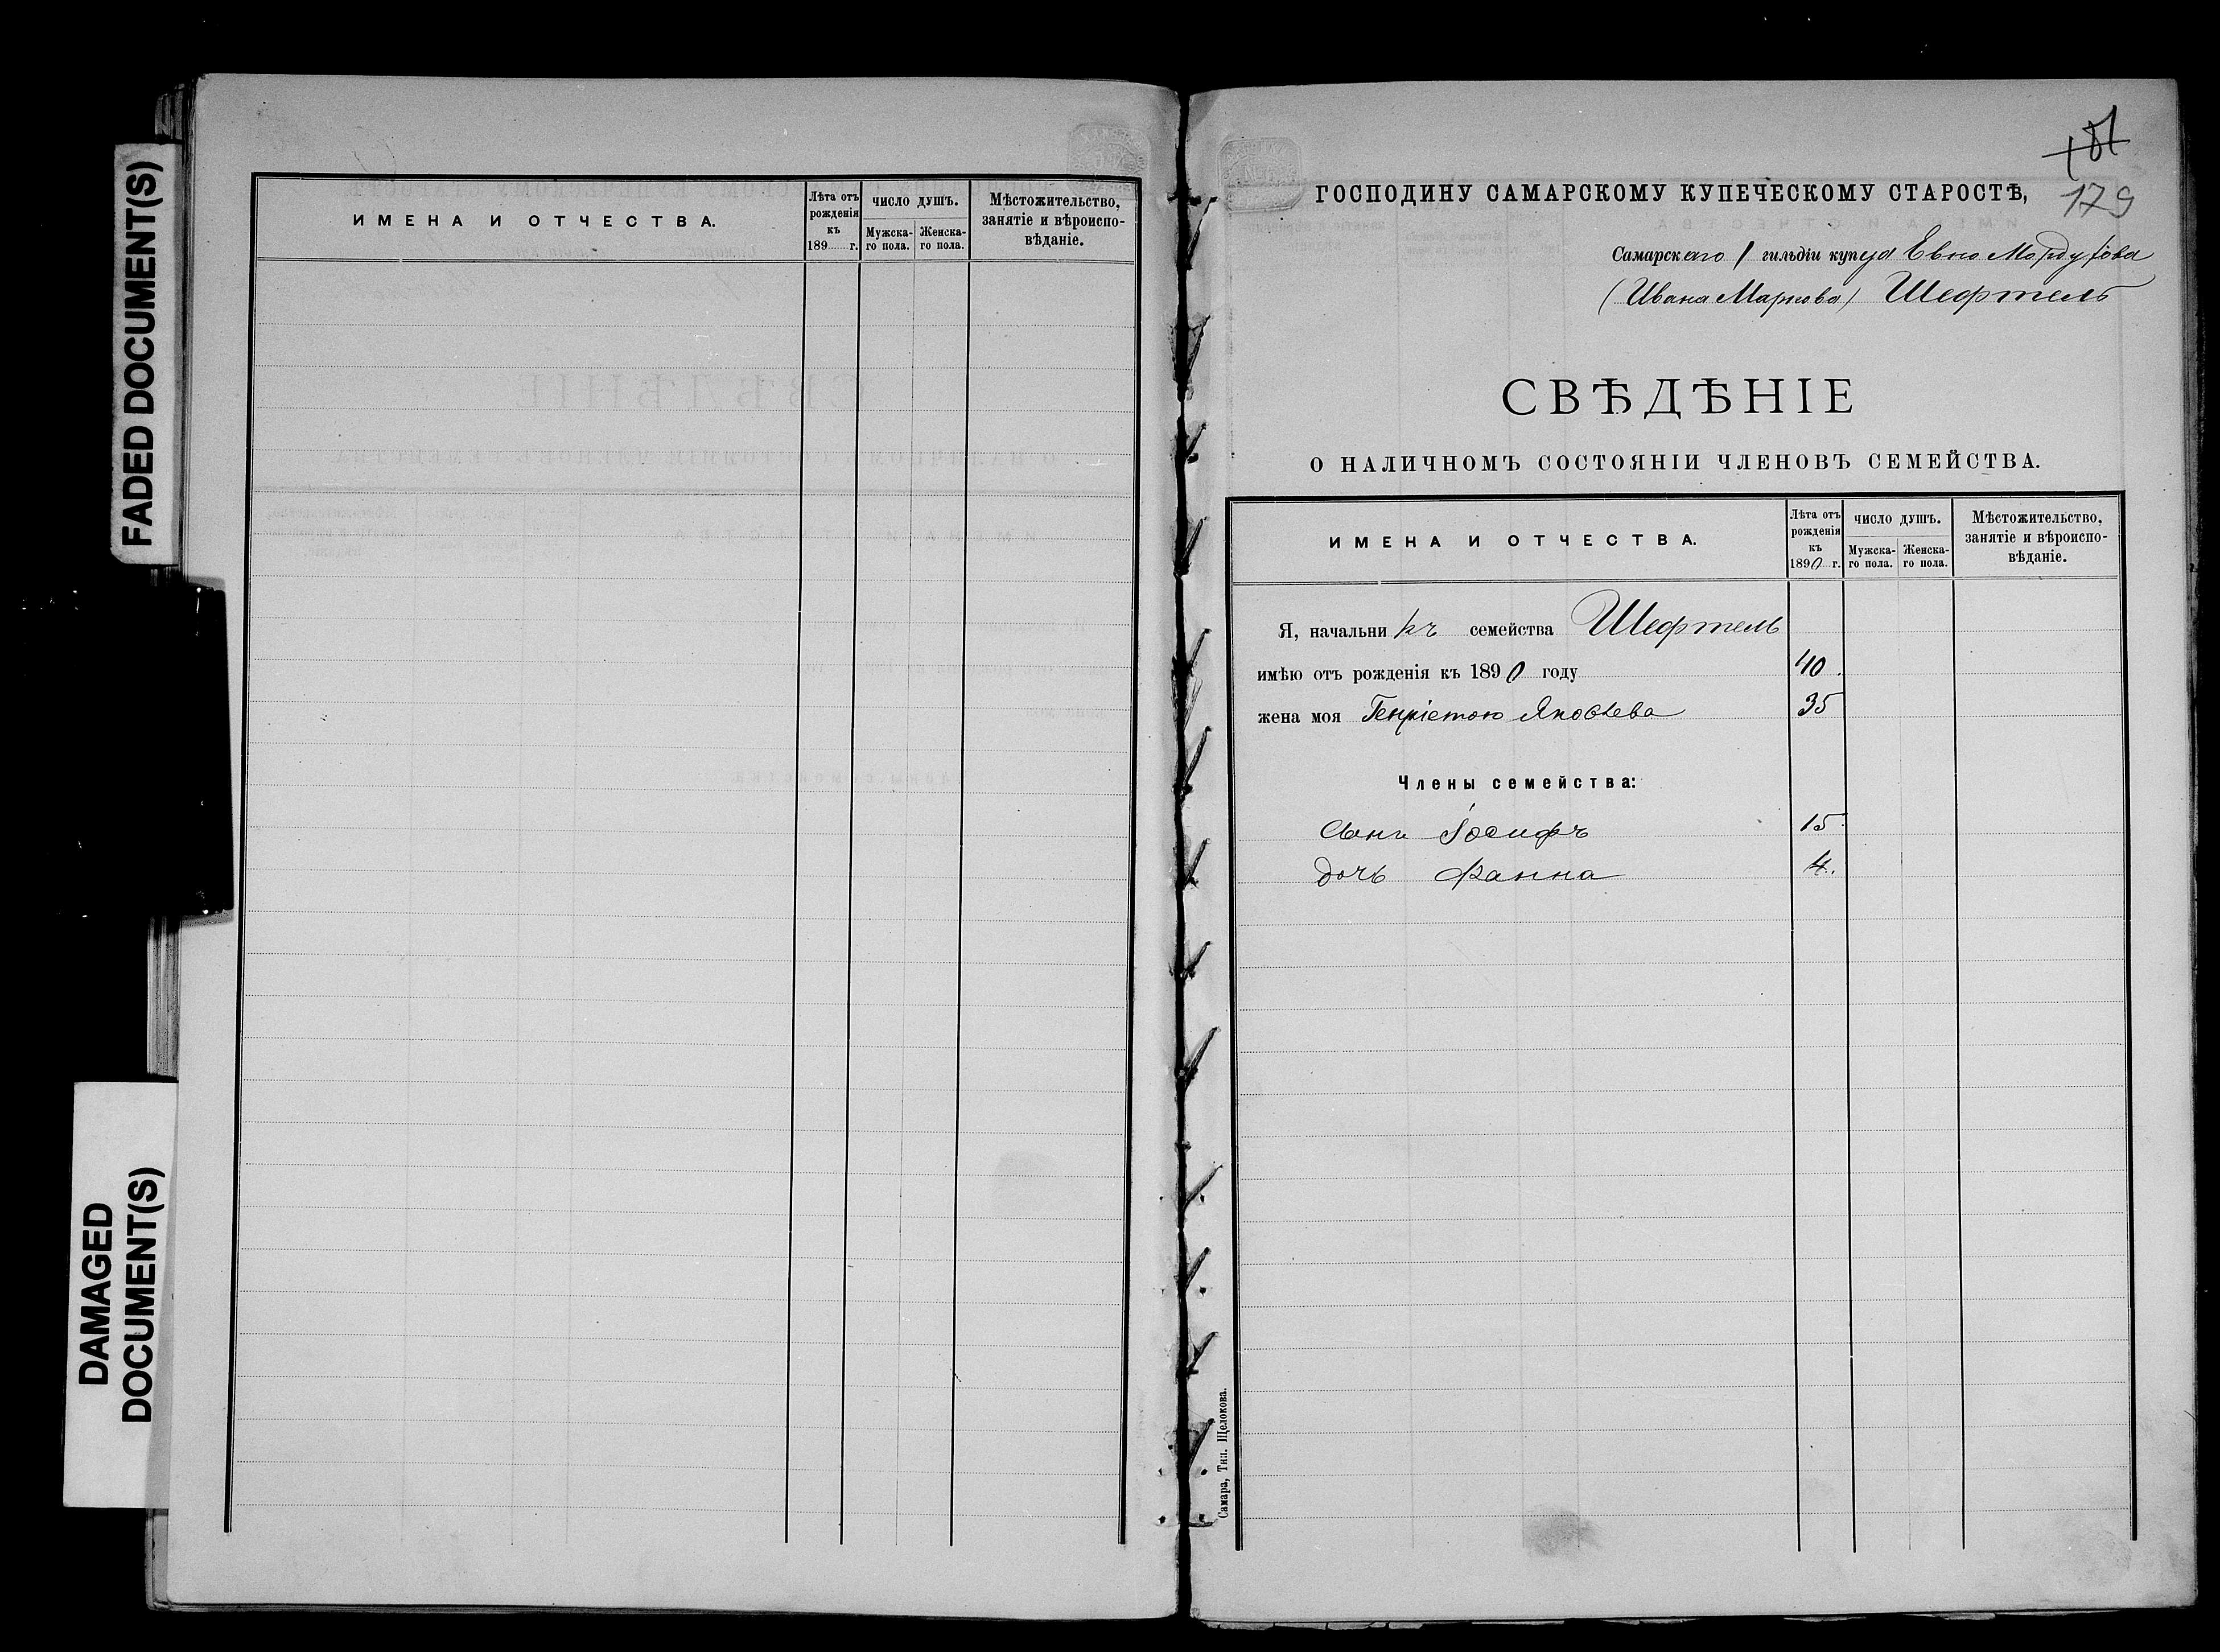 FADED DOCUMENT(S)
DAMAGED
DOCUMENT(S)
ИМЕНА И ОТЧЕСТВА.
Лѣта отъ
рожденія
къ
189 г.
ЧИСЛО ДУШЪ.
Мужска-
го пола.
Женска-
го пола.
Мѣстожительство,
занятіе и вѣроиспо-
вѣданіе.
179
ГОСПОДИНУ САМАРСКОМУ КУПЕЧЕСКОМУ СТАРОСТѢ,
Самарскаго 1 гильдіи купца Евно Мордухова
(Ивана Маркова) Шефтель
СВѢДѢНІЕ
О НАЛИЧНОМЪ СОСТОЯНІИ ЧЛЕНОВЪ СЕМЕЙСТВА.
ИМЕНА И ОТЧЕСТВА.
Лѣта отъ
рожденія
къ
1890 г.
ЧИСЛО ДУШЪ.
Мужска-
го пола.
Женска-
го пола.
Мѣстожительство,
занятіе и вѣроиспо-
вѣданіе.
Я, начальникъ семейства Шефтель
имѣю отъ рожденія къ 1890 году 40.
жена моя Генріетою Яковлева 35
Члены семейства:
Сынъ Іосифъ 15.
дочь Фанна 4.
Самара, Тип. Щелокова.